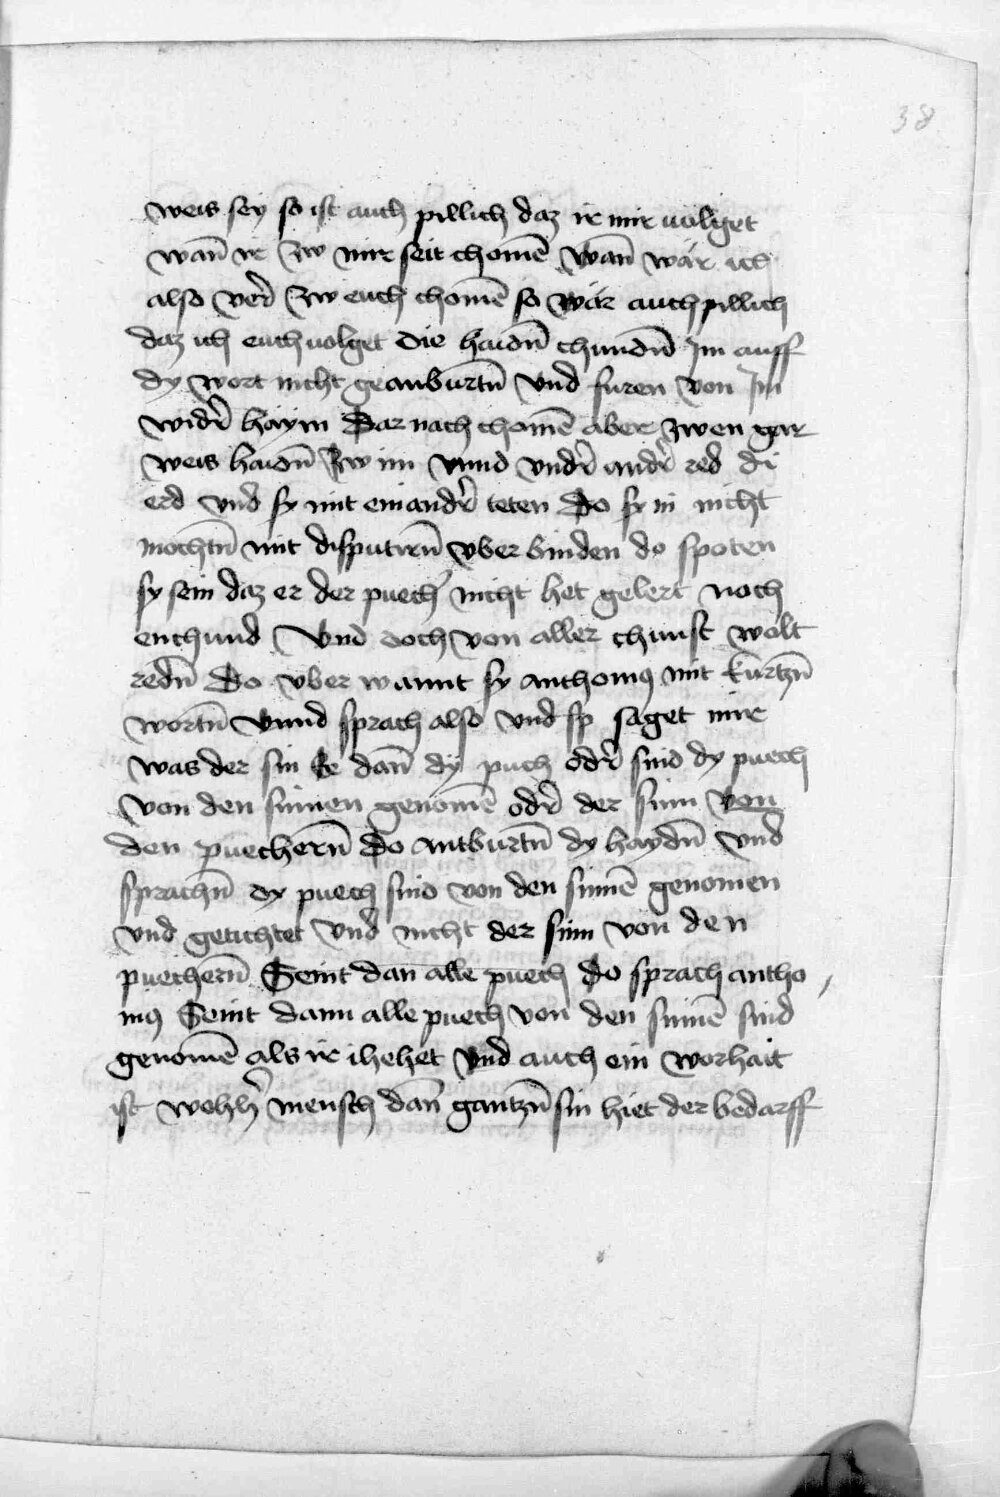 38
weis sey so ist auch pillich daz ir mir uolget
wan̄ ir zw mir seit chomē wan̄ wär ich
also verr̄ zw euch chomē so wär auch pillich
daz ich euch uolget Die haidn̄ chundn̄ Im auff
dy wort nicht geanburtn̄ vnd furen von Im
widr̄ haym Dar nach chomē aber zwen gar
weis haidn̄ zw im vnnd vndr̄ andr̄ red di
er vnd sy mit einandr̄ teten Do sy in nicht
mochtn̄ mit disputirn̄ vber binden do spoten
sy sein daz er der puech̄ nicht het gelert noch
enchund vnd doch von aller chunst wolt
redn̄ Do vber wannt sy anthoniꝰ mit kurtzn̄
wortn̄ vnnd sprach also vnd saget mir
was der sin Ee dan̄ dy puch odr̄ sind dy puech
von den sinnen genomē odr̄ der sinn von
den puechern̄ Do antburtn̄ dy haydn̄ vnd
sprachn̄ dy puech sind von den sinnē genomen
vnd getichtet vnd nicht der sinn von den
puechern̄ Seint dan alle puech Do sprach antho
niꝰ Seint dann alle puech von den sinnē sind
genomē als ir ihehet vnd auch ein worhait
ist welhr̄ mensch dan̄ gantzn̄ sin hiet der bedarff